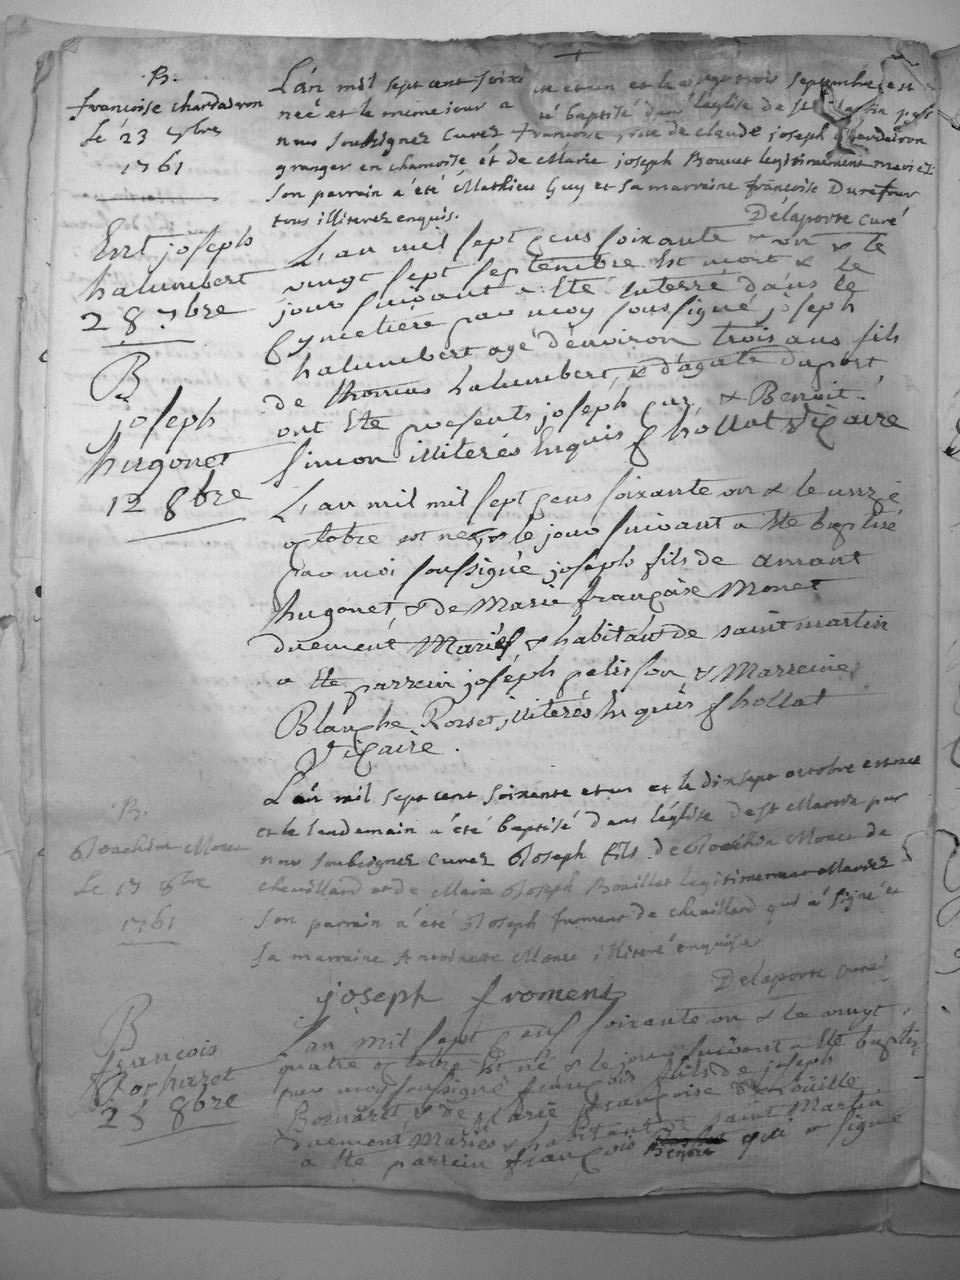 B.
francoise chardairon
Le 23 7bre
1761
L'an mil sept cent soixante et un et le vingt trois septembre est
née et le même jour a été baptisé dans l'église de St Martin par
nous soubsignez curez francoise fille de claude joseph chardairon
granger en chamoise et de Marie joseph Bouvet legitimement mariez
son parrain a été Mathieu Guy et sa marraine francoise Durefour
tous illiterez enquis.
Delaporte curé
Ent joseph
halumbert
28 7bre
L'an mil sept cens soixante & un & le
vingt sept septembre est mort & le
jour suivant a Eté Enterré dans le
Cymetiere par moy soussigné joseph
halumbert agé d'environ trois ans fils
de thomas halumbert, & d'agate duport
ont Ete presents joseph guy & Benoit
simon illiterés Enquis hollat vicaire
B
joseph
hugonet
12 8bre
L'an mil mil sept cens soixante un & le unze
octobre est ne & le jour suivant a Ete baptisé
par moi soussigné joseph fils de amant
hugonet, & de Marie françoise Monet
duement Mariés & habitant de saint martin
a Ete parrein joséph pelisson & Marreine
Blanche Rosset, illiterés Enquis hollat
Vicaire.
B.
Joachim Morel
Le 17 8bre
1761
L'an mil sept cent soixante et un et le dixsept octobre est née
et le lendemain a été baptisé dans l'église de st Martin par
nous soubsignez curez Joseph fils de Joachim Morel de
chevillard et de Marie Joseph Bouillet legitimement Mariez
son parrain a été Joseph froment de chevillard qui a signé et
sa marraine Antoinette Morel illiteré enquise
Delaporte curé
joseph froment
B
françois
25 8bre
L'an mil sept cens soixante un & le vingt
quatre octobre Est né & le jour suivant a Eté baptisé
par moy soussigné françois fils de joseph
& de Marie françoise
duement Mariés & habitants saint Martin
a Ete parrein françois qui a signé